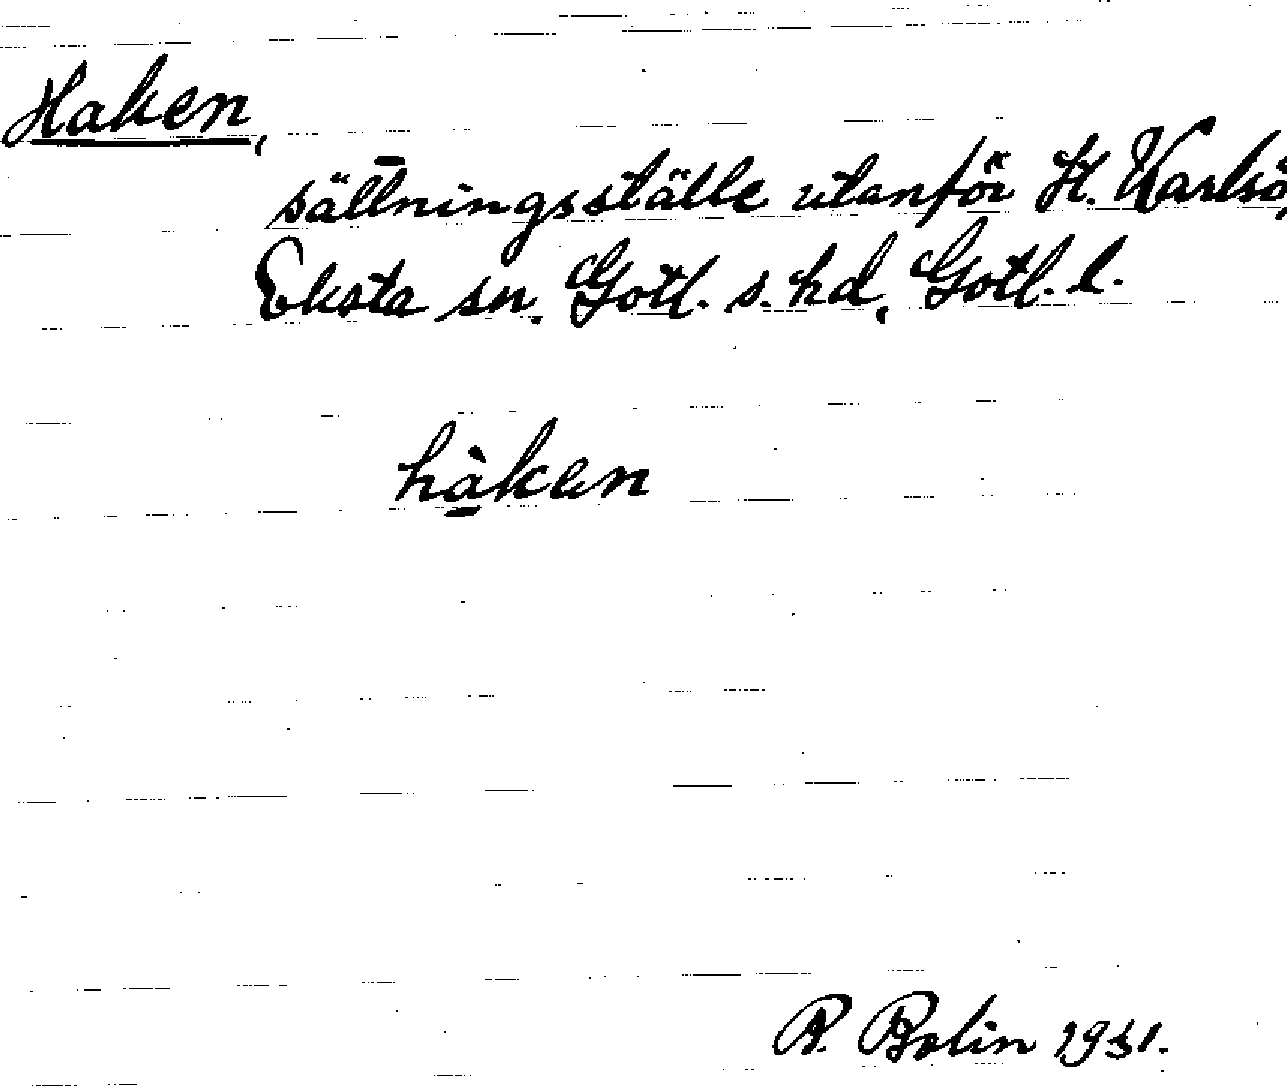 Haken,
sättningsställe utanför St. Karlsö,
Eksta sn. Gotl. s. hd, Gotl. l.
hàken
R. Bolin 1931.